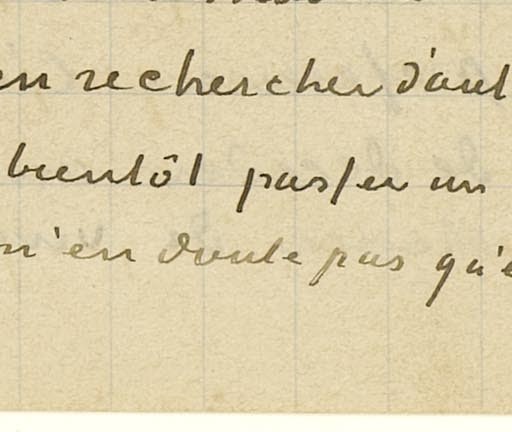 en rechercher d'aut
bientôt passer un
n'en doute pas qu'e